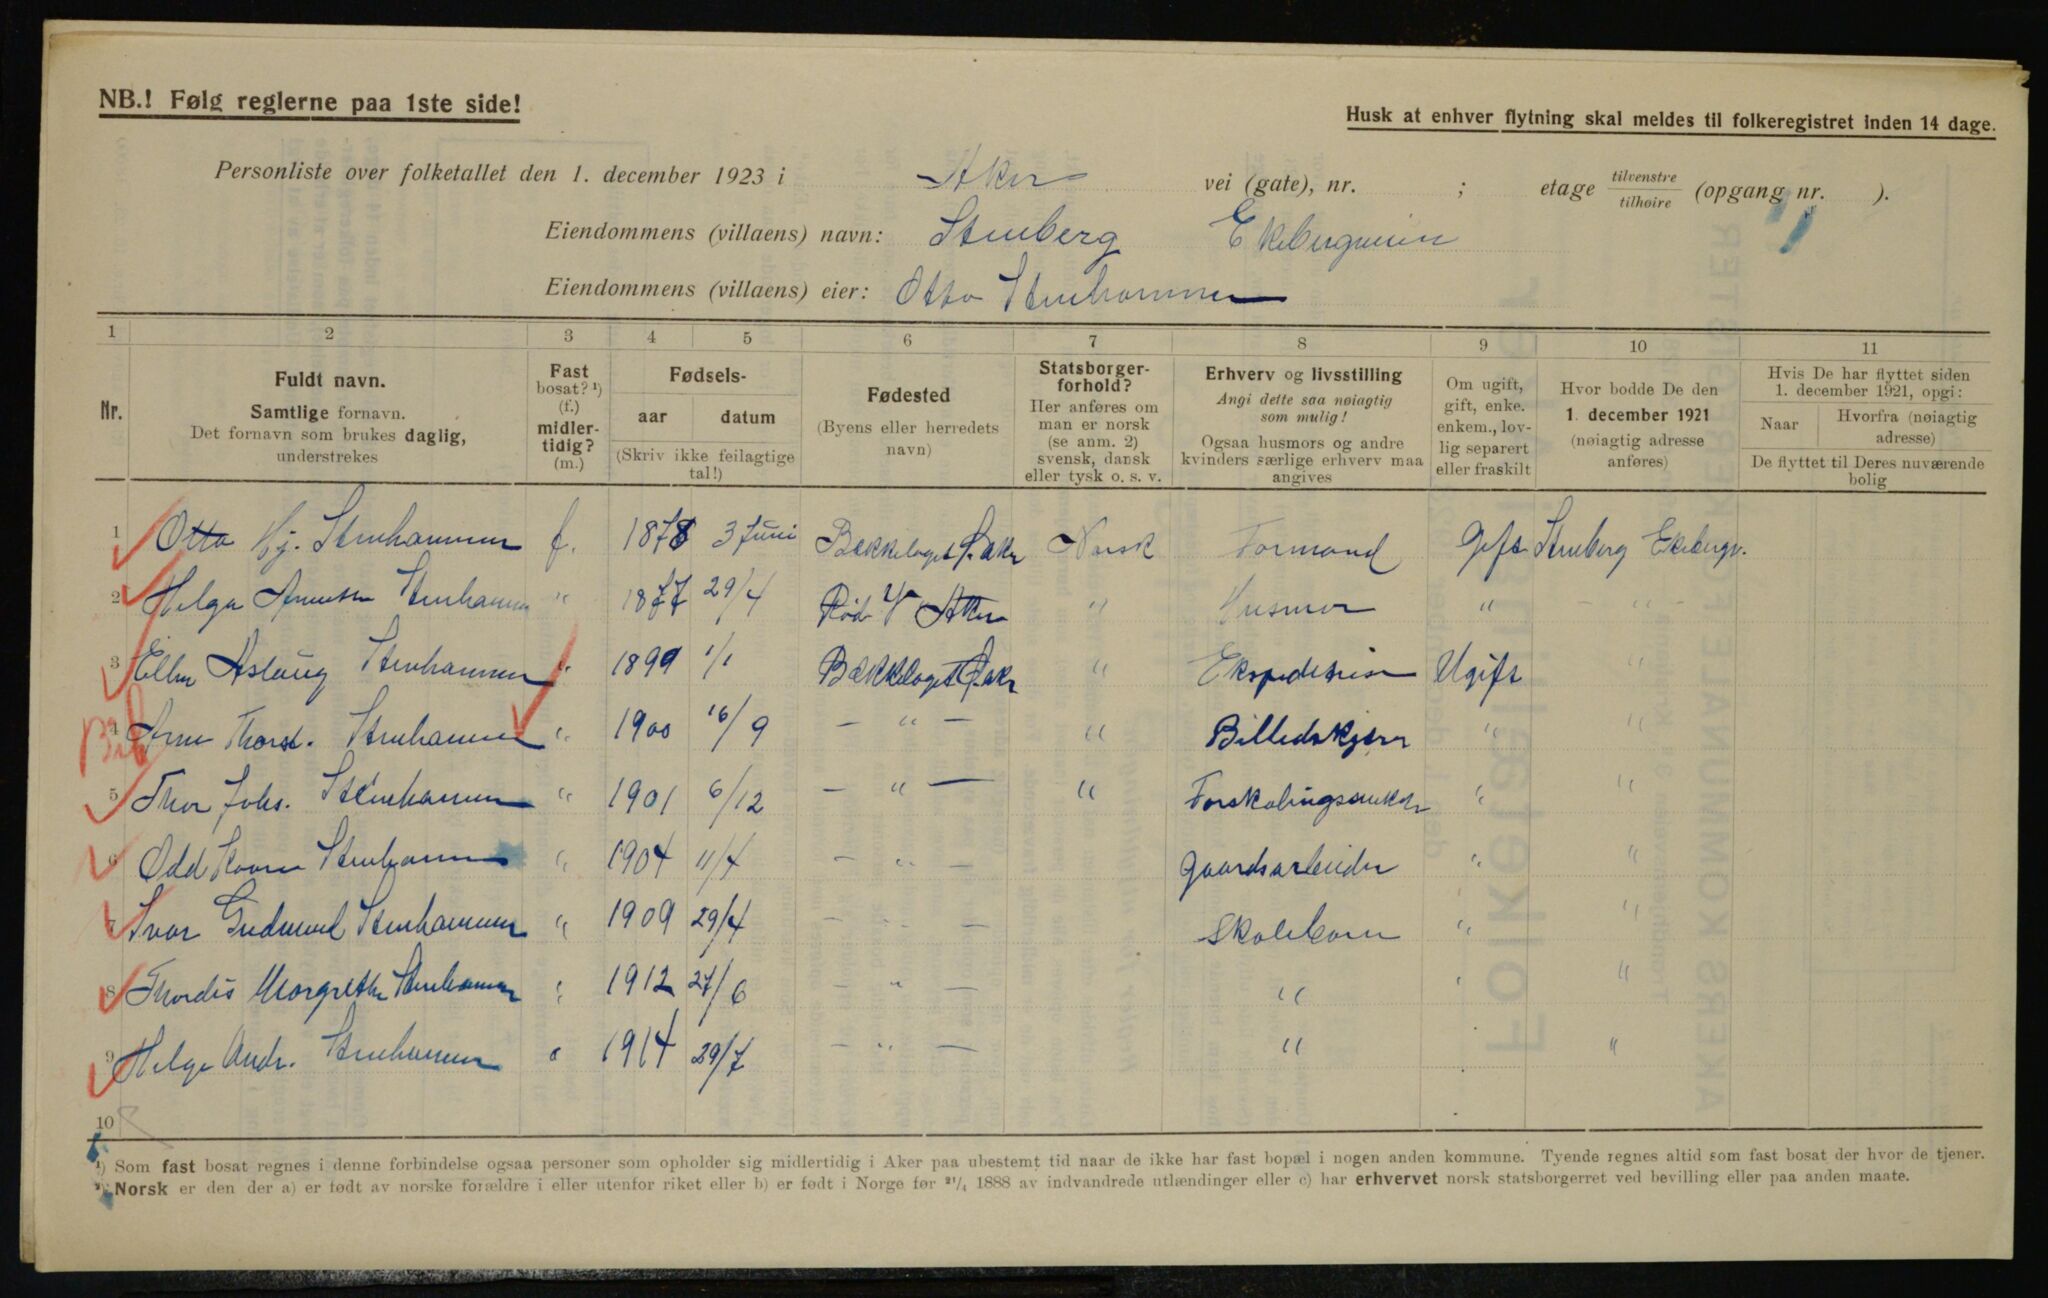 NB.! Følg reglerne paa 1ste side!
Husk at enhver flytning skal meldes til folkeregistret inden 14 dage.
Personliste over folketallet den 1. december 1923 i Aker vei (gate), nr. ; etage tilvenstre tilhøire (opgang nr. ).
Eiendommens (villaens) navn: Stenberg Ekebergveien
Eiendommens (villaens) eier: Otto Stenhammer
1 2 3 4 5 6 7 8 9 10 11
Nr.
Fuldt navn.
Samtlige fornavn.
Det fornavn som brukes daglig,
understrekes
Fast
bosat? ¹)
(f.)
midler-
tidig?
(m.)
Fødsels-
aar datum
(Skriv ikke feilagtige
tal!)
Fødested
(Byens eller herredets
navn)
Statsborger-
forhold?
Her anføres om
man er norsk
(se anm. 2)
svensk, dansk
eller tysk o. s. v.
Erhverv og livsstilling
Angi dette saa nøiagtig
som mulig!
Ogsaa husmors og andre
kvinders særlige erhverv maa
angives
Om ugift,
gift, enke.
enkem., lov-
lig separert
eller fraskilt
Hvor bodde De den
1. december 1921
(nøiagtig adresse
anføres)
Hvis De har flyttet siden
1. december 1921, opgi:
Naar Hvorfra (nøiagtig
adresse)
De flyttet til Deres nuværende
bolig
1 Otto Hj. Stenhammer f. 1878 3 Juni Bækkelaget Ø. Aker Norsk Formand Gift Stenberg Ekebergv.
2 Helga Stenhammer " 1877 29/4 Rød V Aker " Husmor " — " —
3 Ellen Aslaug Stenhammer " 1899 1/1 Bækkelaget Ø. Akr " Ekspeditrise Ugift "
4 Arne Thorst. Stenhammer " 1900 16/9 — " — " Billedskjærer " "
5 Thor Johs. Stenhammer " 1901 6/12 — " — " " "
6 Odd Stenhammer " 1904 11/4 — " — Gaardsarbeider " "
7 Ivar Gudmund Stenhammer " 1909 29/4 — " — Skolebarn " "
8 Thordis Margrethe Stenhammer " 1912 27/6 — " — " " "
9 Helge Andr. Stenhammer " 1914 29/7 — " — " "
10
¹) Som fast bosat regnes i denne forbindelse ogsaa personer som opholder sig midlertidig i Aker paa ubestemt tid naar de ikke har fast bopæl i nogen anden kommune. Tyende regnes altid som fast bosat der hvor de tjener.
²) Norsk er den der a) er født av norske forældre i eller utenfor riket eller b) er født i Norge før ²¹/₄ 1888 av indvandrede utlændinger eller c) har erhvervet norsk statsborgerret ved bevilling eller paa anden maate.